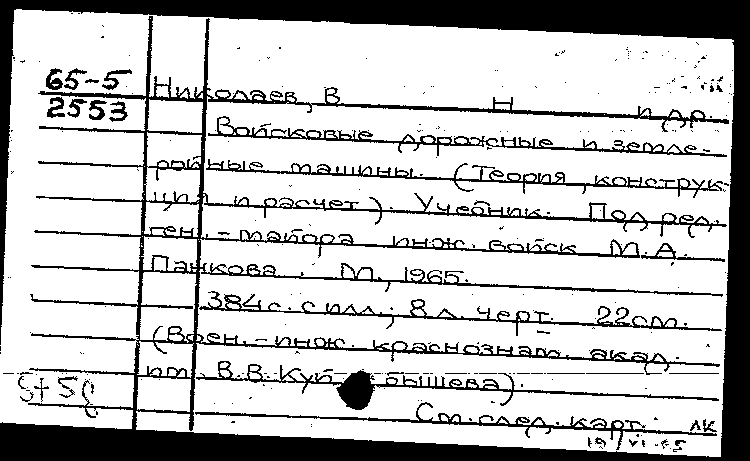 65-5
2553
Николаев, В Н и др.
Войсковые дорожные и земле-
ройные машины. (Теория, конструк-
ция и расчет). Учебник. Под ред.
ген.-майора инж. войск М.А.
Панкова. М., 1965.
384 с. с илл.; 8 л. черт. 22 см.
(Воен.-инж. краснознам. акад.
им. В.В. Куйбышева).
См. след. карт. ЛК